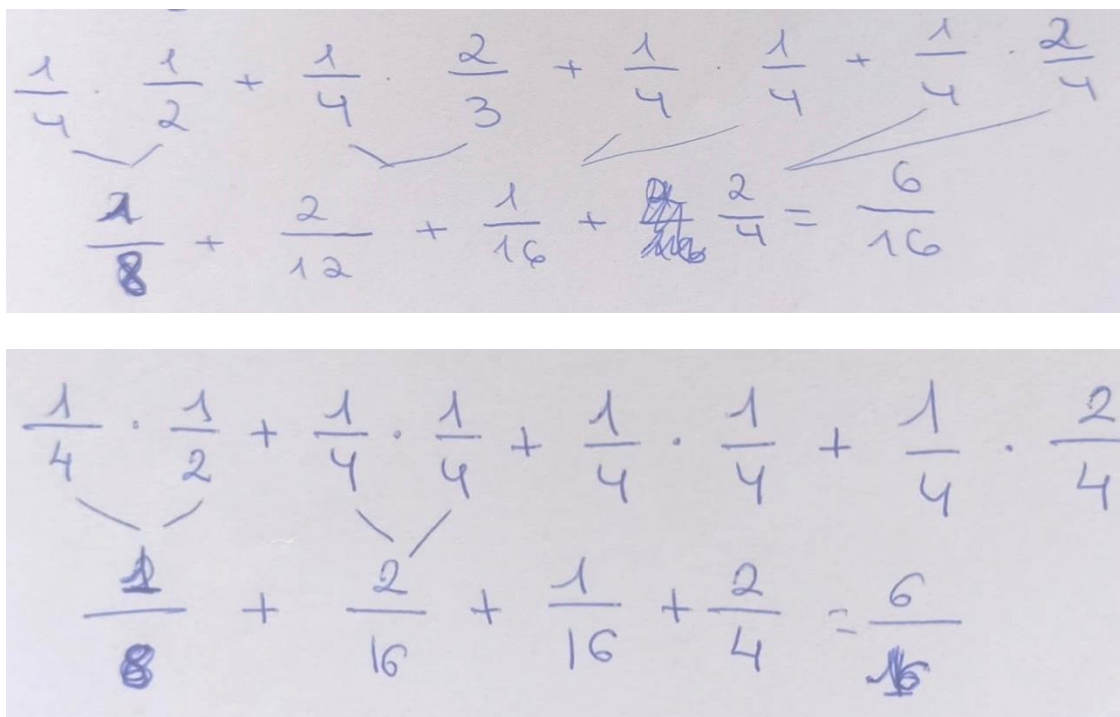 1/4 · 1/2 + 1/4 · 2/3 + 1/4 · 1/4 + 1/4 · 2/4
1/8 + 2/12 + 1/16 + 2/4 = 6/16
1/4 · 1/2 + 1/4 · 1/4 + 1/4 · 1/4 + 1/4 · 2/4
1/8 + 2/16 + 1/16 + 2/4 = 6/16